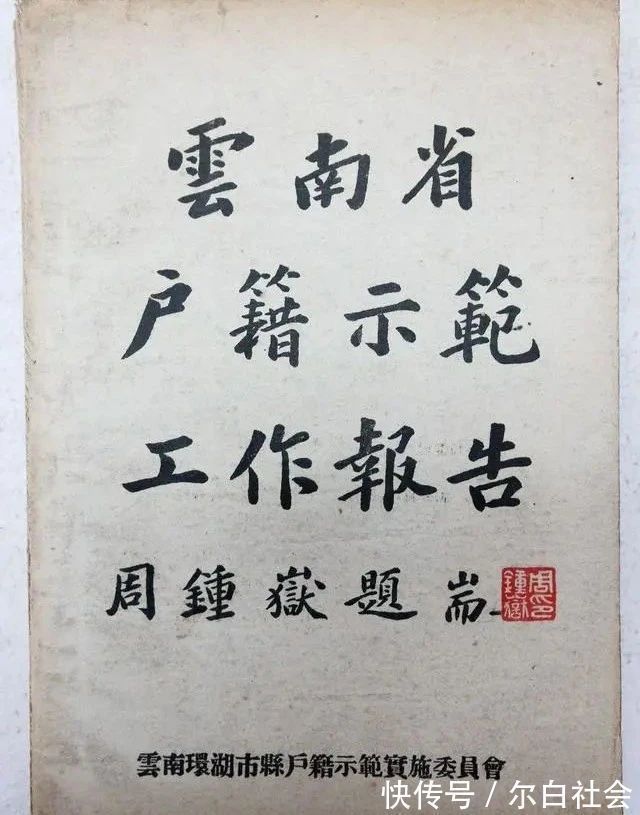 雲南省
户籍示範
工作報告
周鍾嶽題耑
周鍾嶽印
雲南環湖市縣戶籍示範實施委員會
快传号/尔白社会